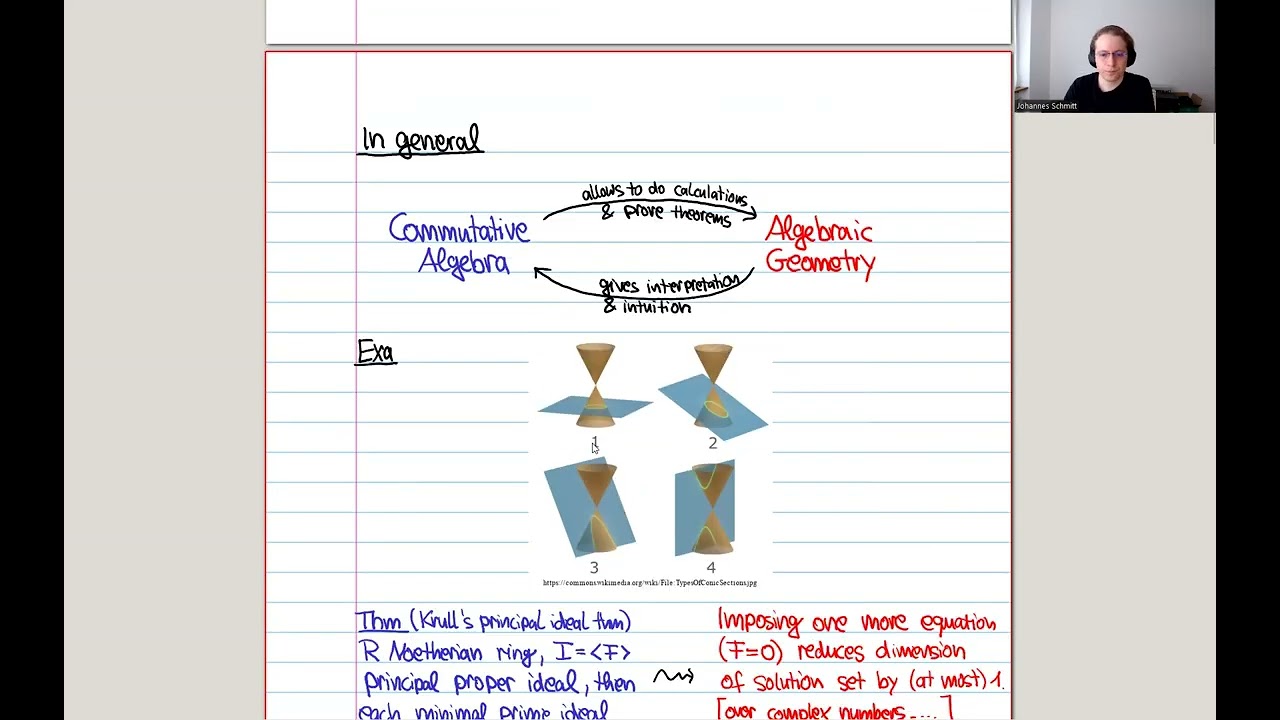 Johannes Schmitt
In general
allows to do calculations
& prove theorems
Commutative
Algebra
Algebraic
Geometry
gives interpretation
& intuition
Exa
1
2
3
4
https://commons.wikimedia.org/wiki/File:TypesOfConicSections.jpg
Thm (Krull's principal ideal thm)
R Noetherian ring, I=<F>
principal proper ideal, then
each minimal prime ideal
Imposing one more equation
(F=0) reduces dimension
of solution set by (at most) 1.
[over complex numbers....]